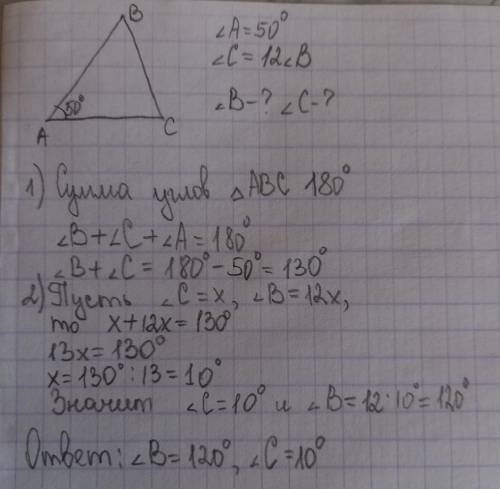 B
∠A=50°
∠C=12∠B
∠B-? ∠C-?
50°
A
C
1) Сумма углов △ABC 180°
∠B+∠C+∠A=180°
∠B+∠C=180°-50°=130°
2) Пусть ∠C=x, ∠B=12x,
то x+12x=130°
13x=130°
x=130°:13=10°
Значит ∠C=10° и ∠B=12·10°=120°
Ответ: ∠B=120°, ∠C=10°